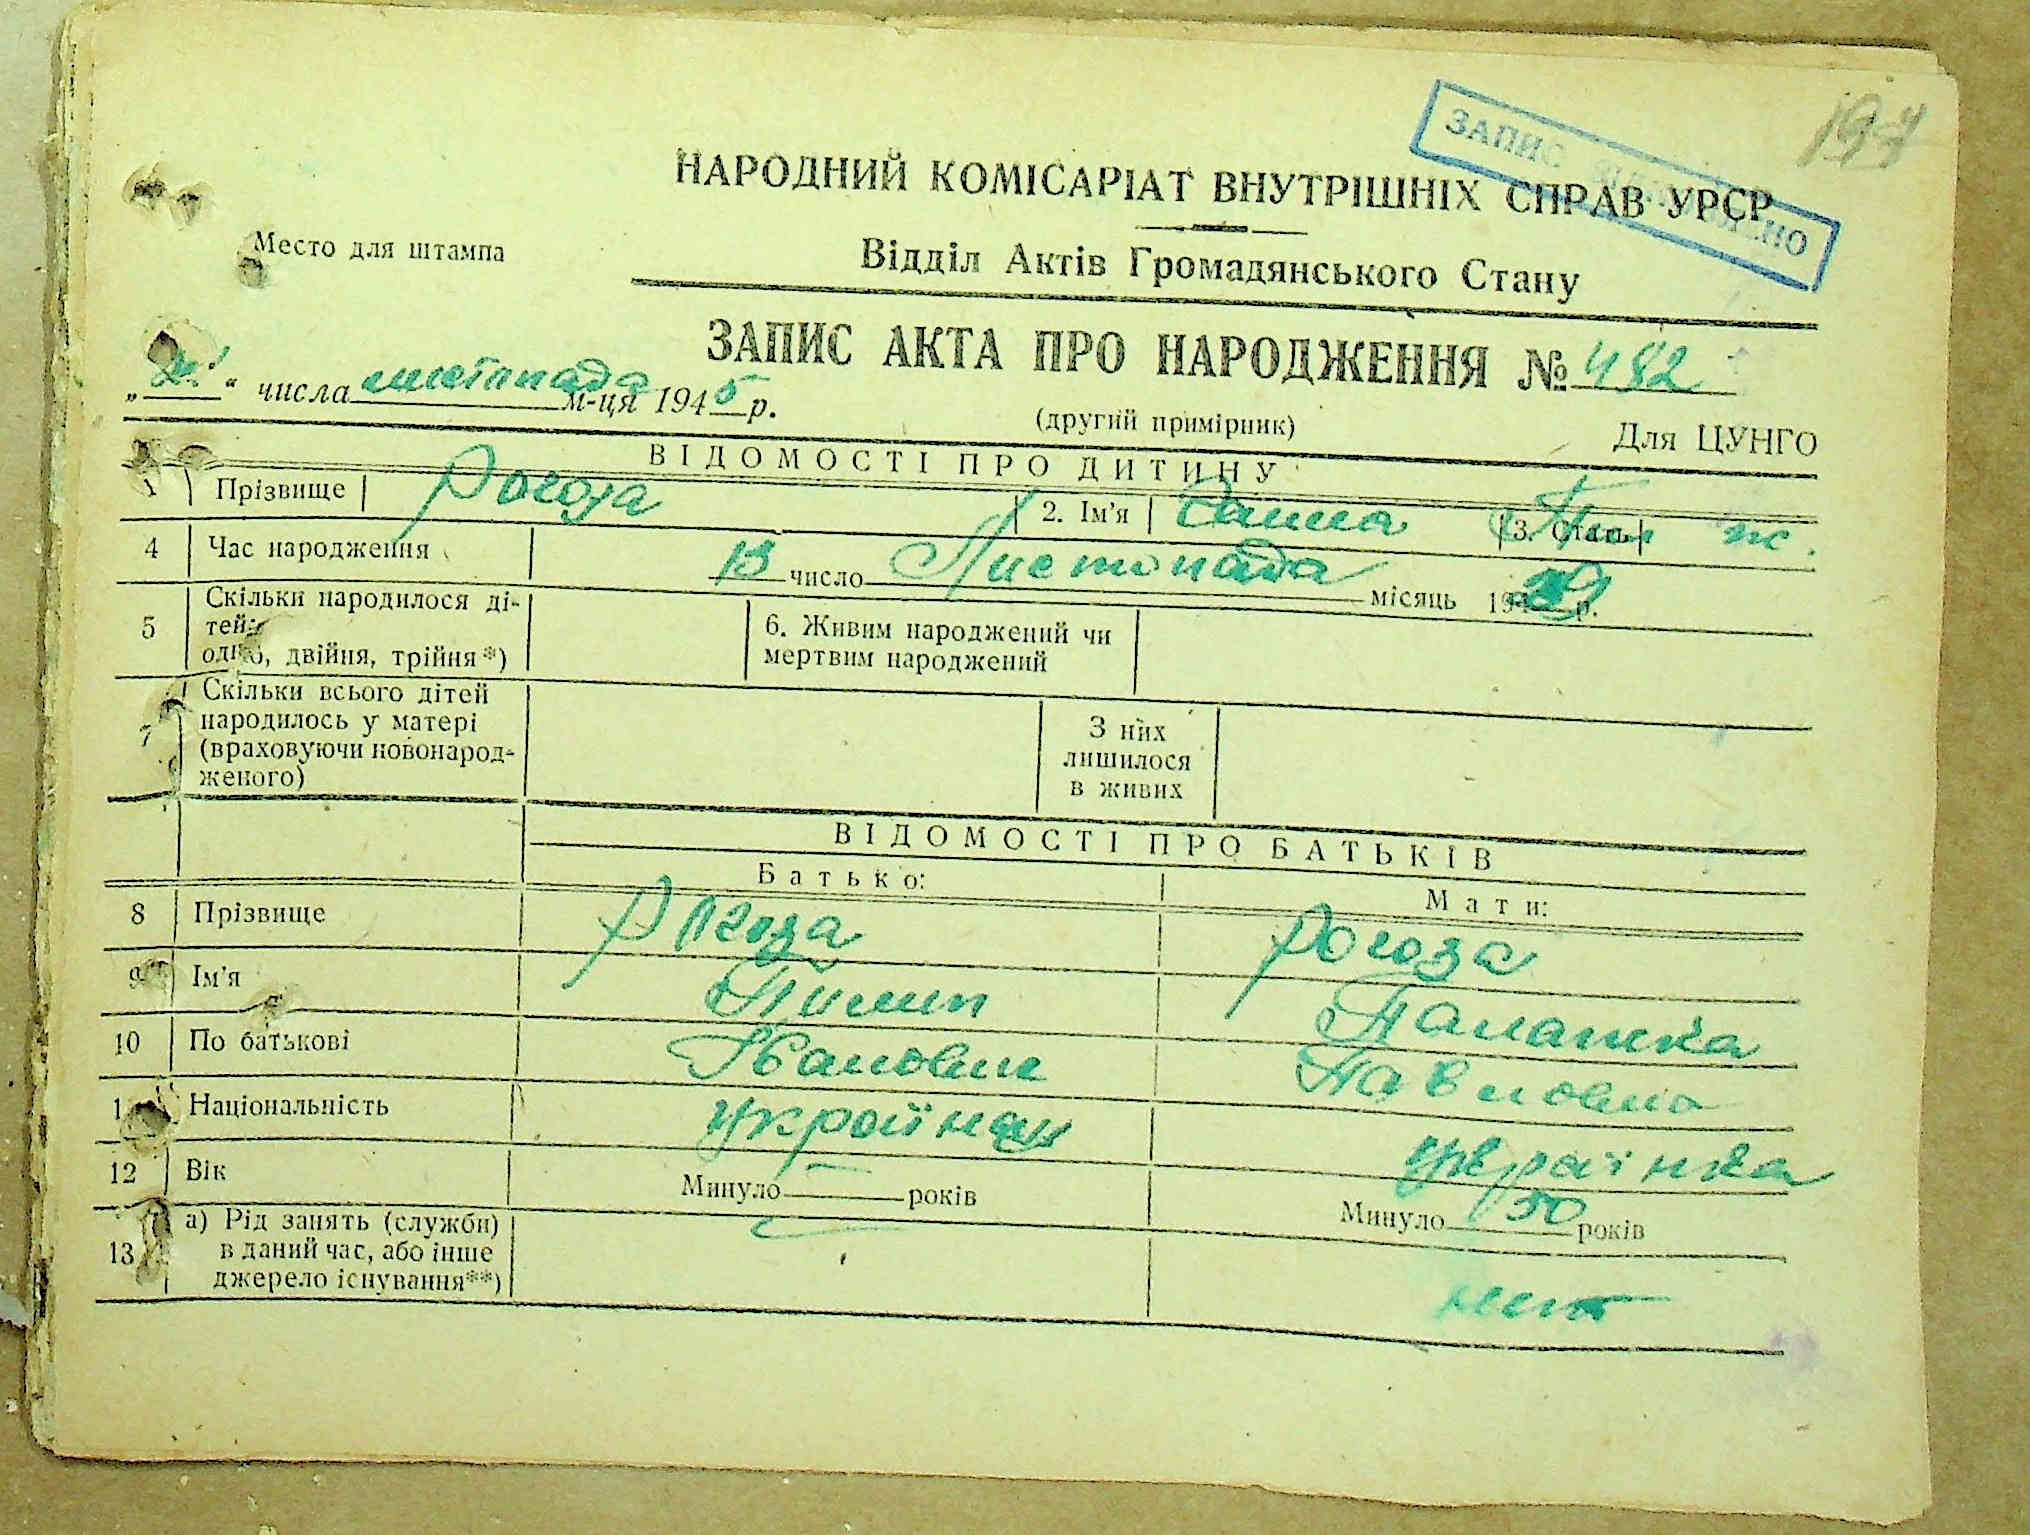 197
ЗАПИС ВІДНОВЛЕНО
НАРОДНИЙ КОМІСАРІАТ ВНУТРІШНІХ СПРАВ УРСР
Место для штампа
Відділ Актів Громадянського Стану
ЗАПИС АКТА ПРО НАРОДЖЕННЯ № 482
„ “ числа листопада м-ця 1945 р.
(другий примірник)
Для ЦУНГО
ВІДОМОСТІ ПРО ДИТИНУ
1 Прізвище Рогоза 2. Ім'я Ганна 3. Стать ж.
4 Час народження 13 число Листопада місяць 19 р.
5 Скільки народилося ді-
тей:
одно, двійня, трійня*)
6. Живим народжений чи
мертвим народжений
7 Скільки всього дітей
народилось у матері
(враховуючи новонарод-
женого)
З них
лишилося
в живих
ВІДОМОСТІ ПРО БАТЬКІВ
Батько: Мати:
8 Прізвище Рогоза Рогоза
9 Ім'я Пилип Палажка
10 По батькові Іванович Павловна
1 Національність українец українка
12 Вік Минуло — років Минуло 50 років
13 а) Рід занять (служби)
в даний час, або інше
джерело існування**)